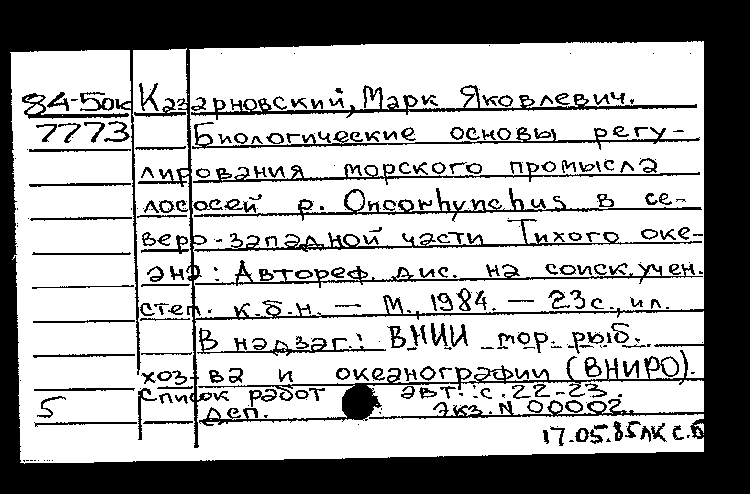 84-5ок Казарновский, Марк Яковлевич.
7773 Биологические основы регу-
лирования морского промысла
лососей р. Oncorhynchus в се-
веро-западной части Тихого оке-
ана: Автореф. дис. на соиск. учен.
степ. к.б.н. — М., 1984. — 23 с., ил.
В надзаг.: ВНИИ мор. рыб.
хоз-ва и океанографии (ВНИРО).
Список работ авт.: с. 22-23.
5 деп. Экз. N 00002.
17.05.85 ЛК с.б